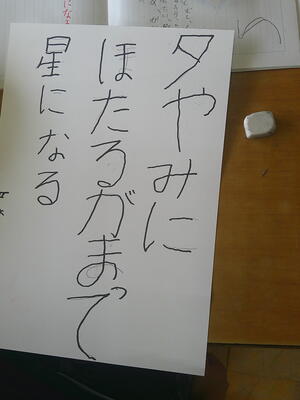 夕やみに
ほたるがまで
星になる